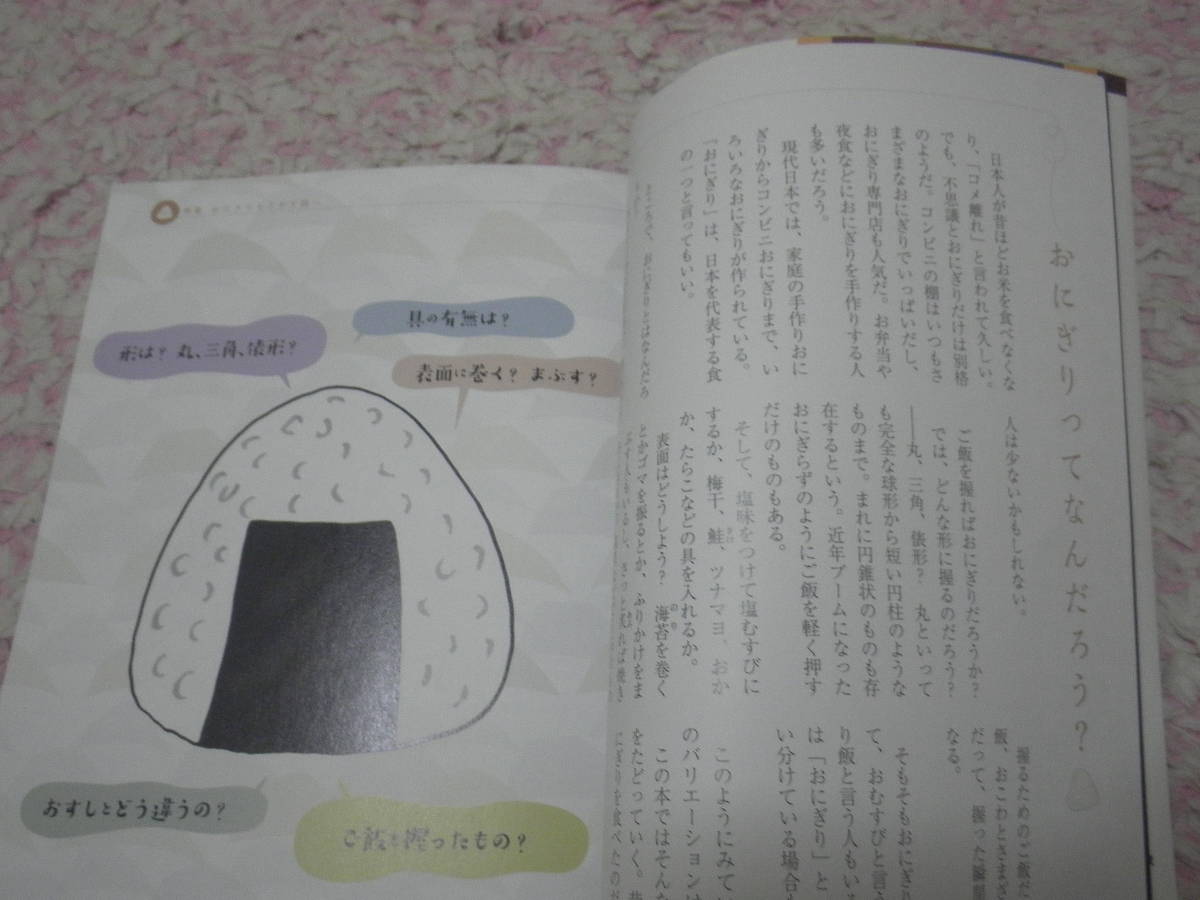 おにぎりってなんだろう?
日本人が昔ほどお米を食べなくな
り、「コメ離れ」と言われて久しい。
でも、不思議とおにぎりだけは別格
のようだ。コンビニの棚はいつもさ
まざまなおにぎりでいっぱいだし、
おにぎり専門店も人気だ。お弁当や
夜食などにおにぎりを手作りする人
も多いだろう。
現代日本では、家庭の手作りおに
ぎりからコンビニおにぎりまで、い
ろいろなおにぎりが作られている。
「おにぎり」は、日本を代表する食
の一つと言ってもいい。
ところで、おにぎりとはなんだろ
人は少ないかもしれない。
ご飯を握ればおにぎりだろうか?
では、どんな形に握るのだろう?
――丸、三角、俵形? 丸といって
も完全な球形から短い円柱のような
ものまで。まれに円錐状のものも存
在するという。近年ブームになった
おにぎらずのようにご飯を軽く押す
だけのものもある。
そして、塩味をつけて塩むすびに
するか、梅干、鮭、ツナマヨ、おか
か、たらこなどの具を入れるか。
表面はどうしよう? 海苔を巻く
とかゴマを振るとか、ふりかけをま
握るためのご飯だ
飯、おこわとさまざ
だって、握った瞬間
なる。
そもそもおにぎり
て、おむすびと言う
り飯と言う人もいる
は「おにぎり」と
い分けている場合も
このようにみてい
のバリエーションは
この本ではそんな
をたどっていく。昔
にぎりを食べたのが
具の有無は?
形は? 丸、三角、俵形?
表面に巻く? まぶす?
おすしとどう違うの?
ご飯を握ったもの?